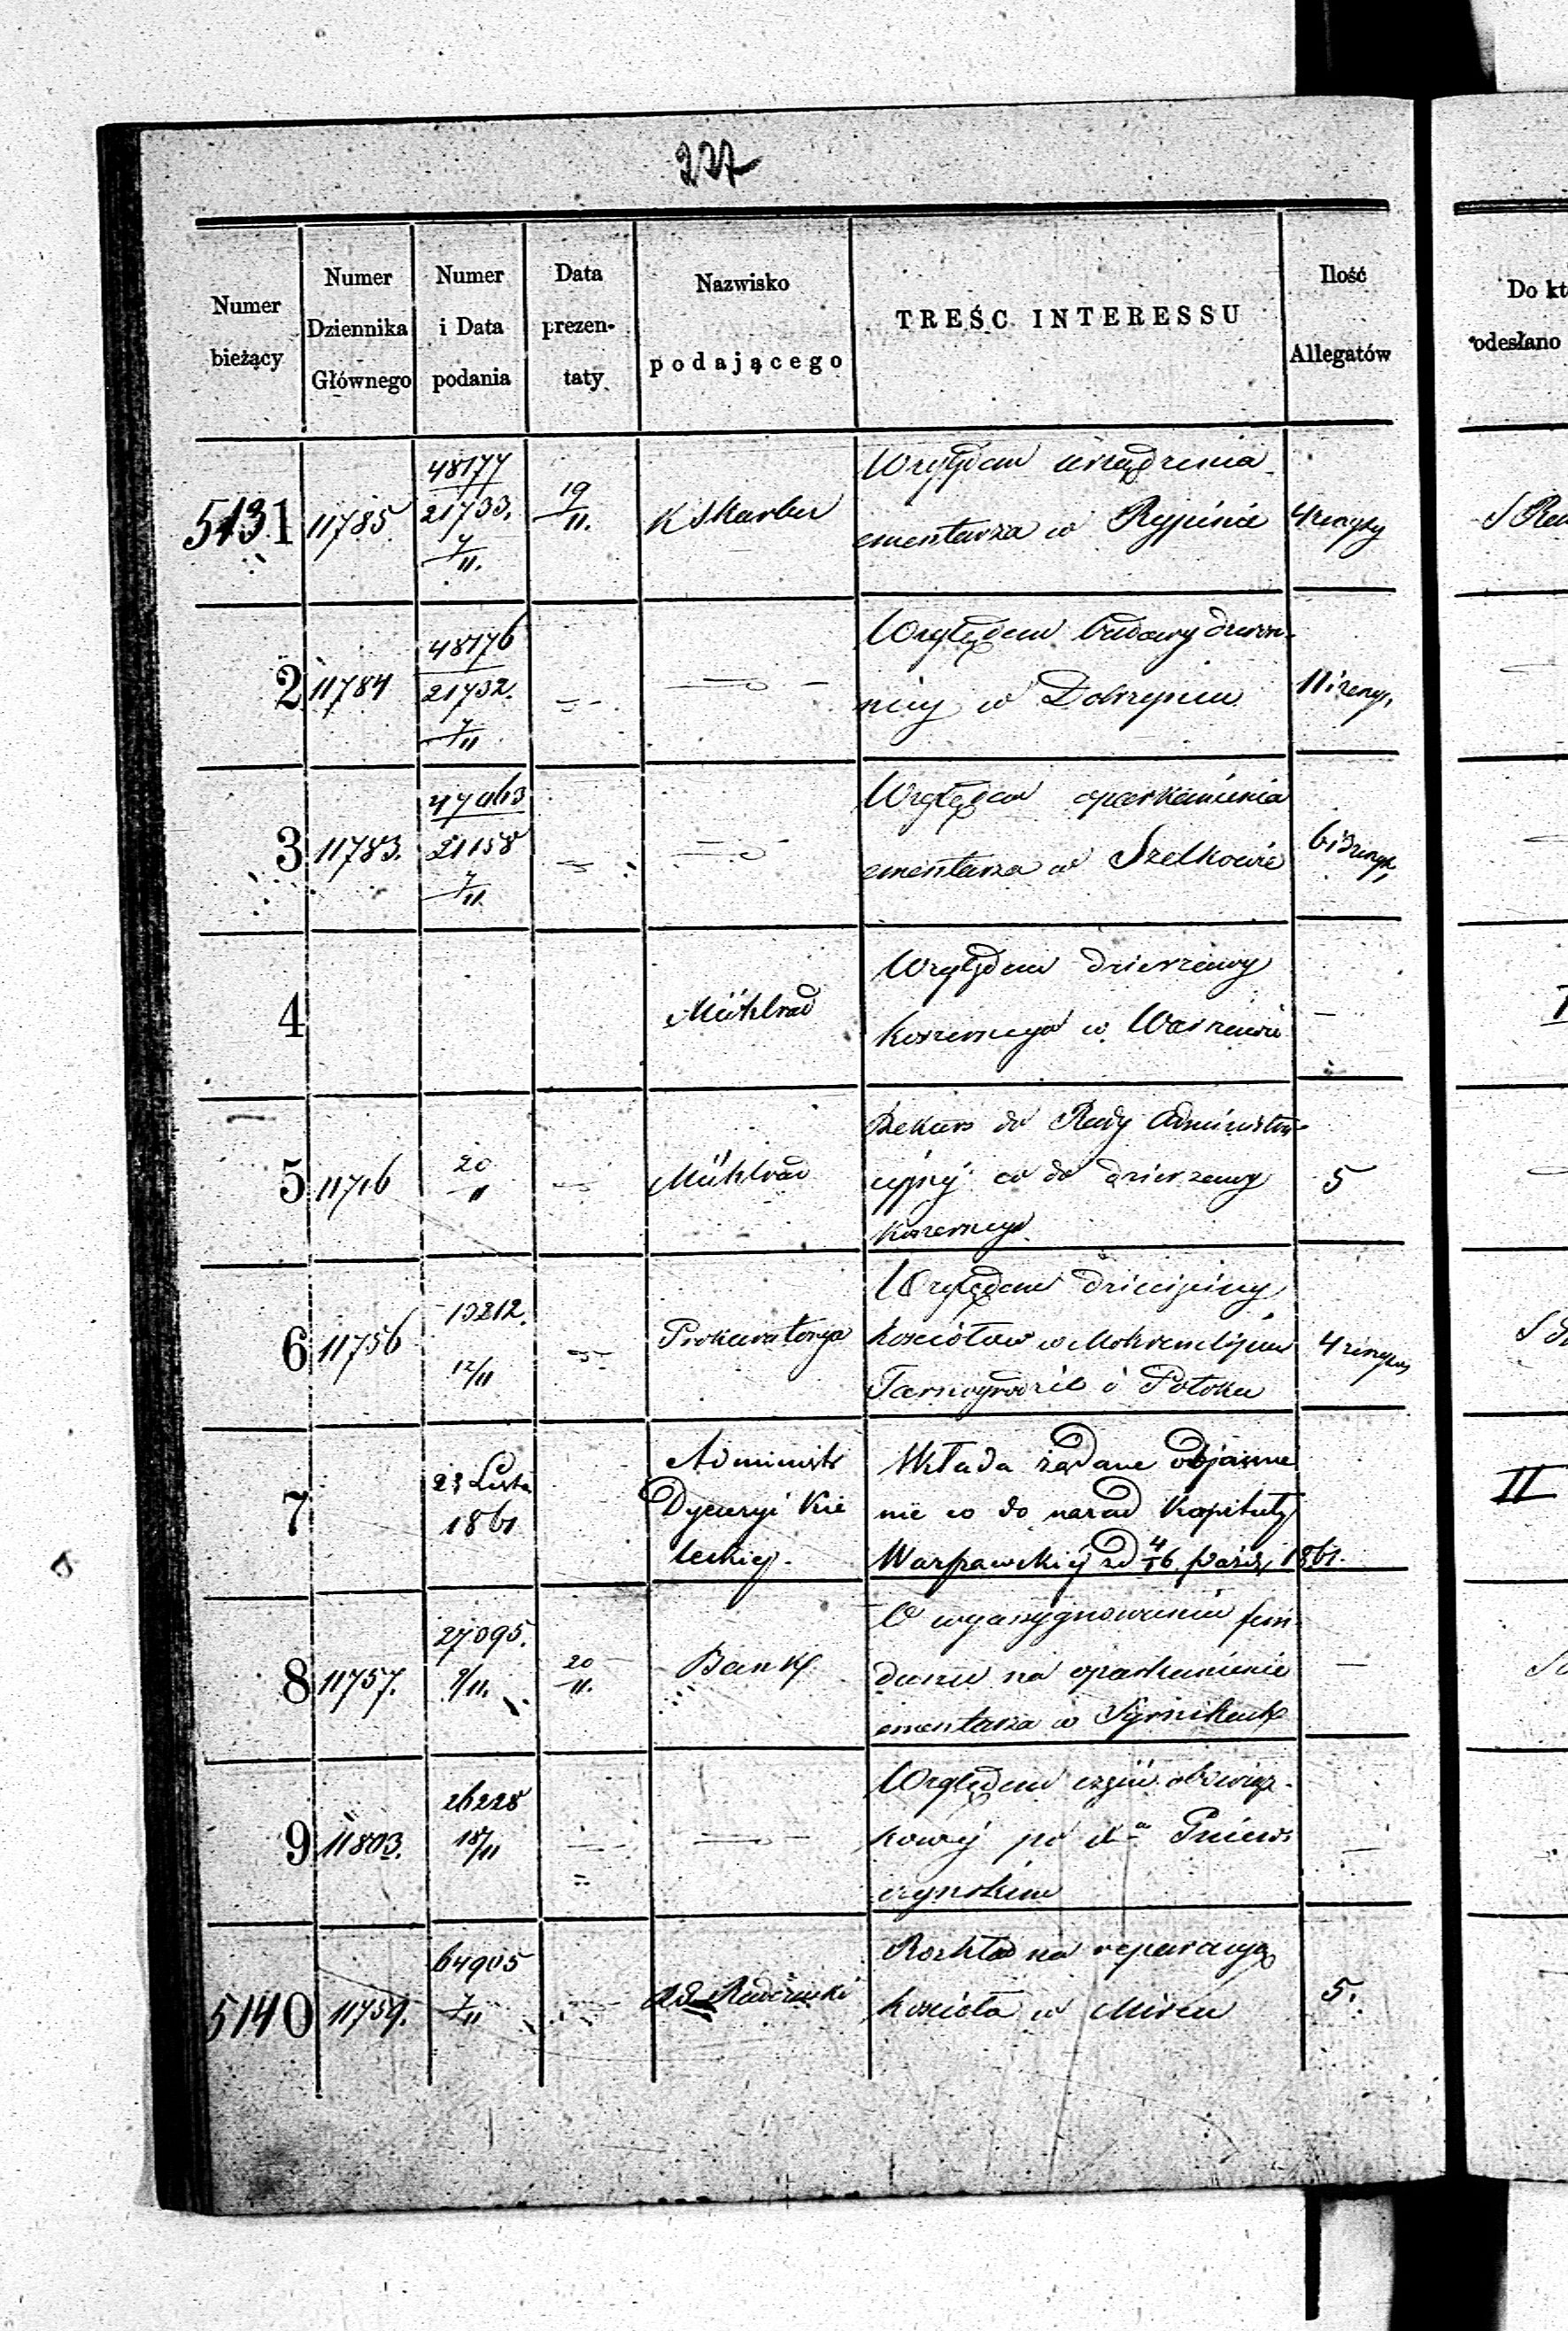 227
Numer bieżący
Numer Dziennika Głównego
Numer i Data podania
Data prezen- taty
Nazwisko podającego
TREŚC INTERESSU
Ilość Allegatów
Do kt
odesłano
5131
11785
48177
21733.
7/11.
19/11.
K Skarbu
Względem urządzenia
cmentarza w Rypinie
2
11784
48176
21732.
7/11
Względem budowy dzwon-
nicy w Dobrzyniu
3
11783.
21158
7/11
Względem oparkanienia
cmentarza w Szelkowie
4
Mühlrad
Względem dzierzawy
koszernego w Warszawie
5
11716
20/11
Mühlrad
Rekurs do Rady Administra-
cyjnej co do dzierzawy
koszernego
5
6
11756
13212.
12/11
Prokuratorya
Względem
kościołów w
Tarnogrodzie i Potoku
7
23 Listo
1861
Administr
Dyecezyi Kie
leckiej.
Wkłada żądane objaśnie
nie co do narad Kapituły
Warszawskiej zd 4/16 paźdz, 1861.
II
8
11757.
27095.
9/11.
20/11.
Bank
O wyasygnowaniu fun-
duszu na oparkanienie
cmentarza w
9
11803.
26228
18/11
Względem części obowiąz-
kowej po
5140
11759.
64905
7/11
Rozkład na reparacyę
kościoła w Mircu
5.